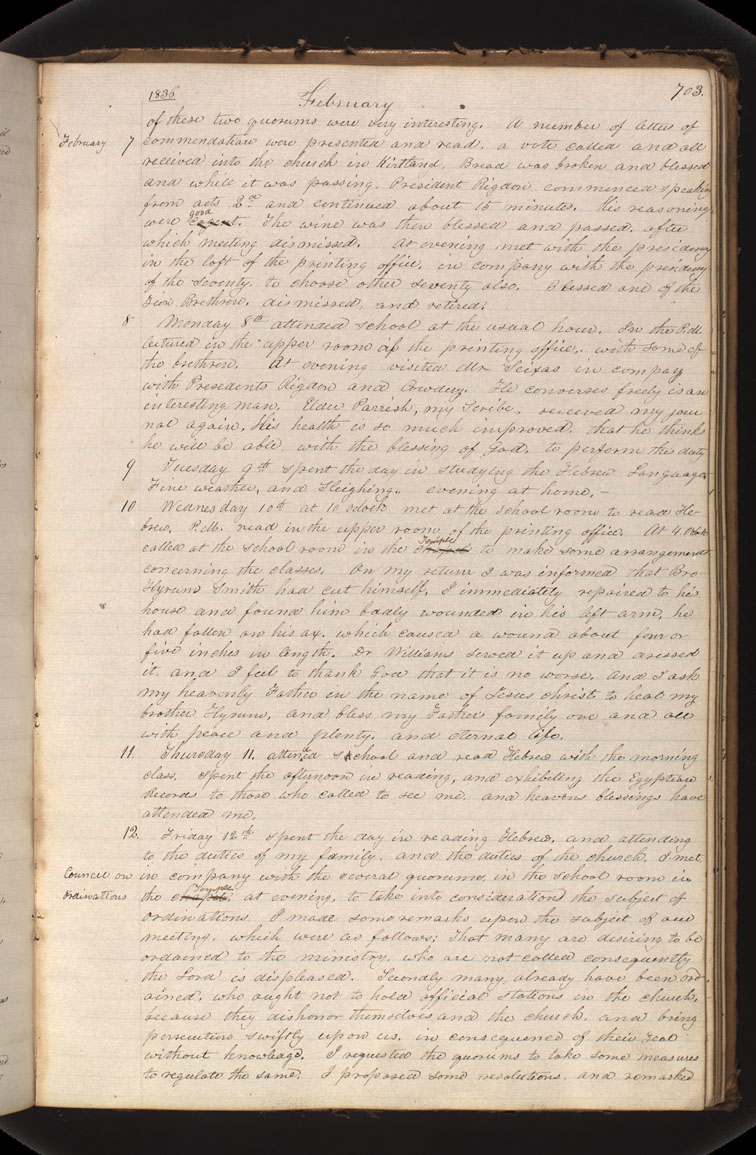 1836
February
703.
of these two quorums were very interesting. A number of letters of
February 7 commendation were presented and read, a vote called and all
received into the church in Kirtland. Bread was broken and blessed
and while it was passing, President Rigdon, commenced speaking
from acts 2nd and continued about 15 minutes. His reasoning,
were good cogent. The wine was then blessed and passed, after
which meeting dismissed. At evening met with the presidency
in the loft of the printing office, in company with the presidency
of the seventy, to choose other seventy also. Blessed one of the
Zion Brethren, dismissed, and retired.
8 Monday 8th attended school at the usual hour. In the P.M.
lectured in the upper room of the printing office, with some of
the brethren. At evening visited Mr Seixas in company
with Presedents Rigdon and Cowdery. He converses freely is an
interesting man. Elder Parrish, my Scribe, received my jour-
nal again. His health is so much improved that he thinks
he will be able, with the blessing of God, to perform the duty
9 Tuesday 9th spent the day in studying the Hebrew Language
Fine weather, and Sleighing. evening at home.—
10 Wednesday 10th at 10 oclock met at the school room to read He-
brew, P.M. read in the upper room of the printing office. At 4, oclock
called at the school room in the Temple chapel to make some arrangements
concerning the classes. On my return I was informed that Bro-
Hyrum Smith had cut himself. I immediately repaired to his
house and found him badly wounded in his left arm, he
had fallen on his ax. which caused a wound about four or
five inches in length. Dr Williams sewed it up and dressed
it. and I feel to thank God that it is no worse. and I ask
my heavenly Father in the name of Jesus christ to heal my
brother Hyrum, and bless my Father's family one and all
with peace and plenty, and eternal life.
11 Thursday 11. attended school and read Hebrew with the morning
class. spent the afternoon in reading, and exhibiting the Egyptian
Records to those who called to see me. and heavens blessings have
attended me.
12. Friday 12th spent the day in reading Hebrew, and attending
to the duties of my family, and the duties of the church. I met
Council on in company with the several quorums in the school room in
ordinations the Temple chapel, at evening, to take into consideration the subject of
ordinations. I made some remarks upon the subject of our
meeting, which were as follows; That many are desiring to be
ordained to the ministry, who are not called consequently
the Lord is displeased. Secondly many already have been ord-
ained, who ought not to hold official stations in the church,
because they dishonor themselves and the church. and bring
persecution swiftly upon us, in consequence of their zeal
without knowledge. I requested the quorums to take some measures
to regulate the same. I proposed some resolutions. and remarked